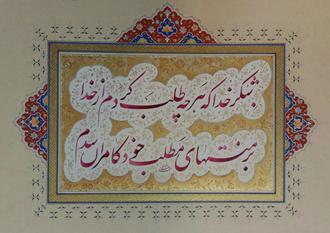 شکر خدا که هر چه طلب کردم از خدا
بر منتهای مطلب خود کامران شدم